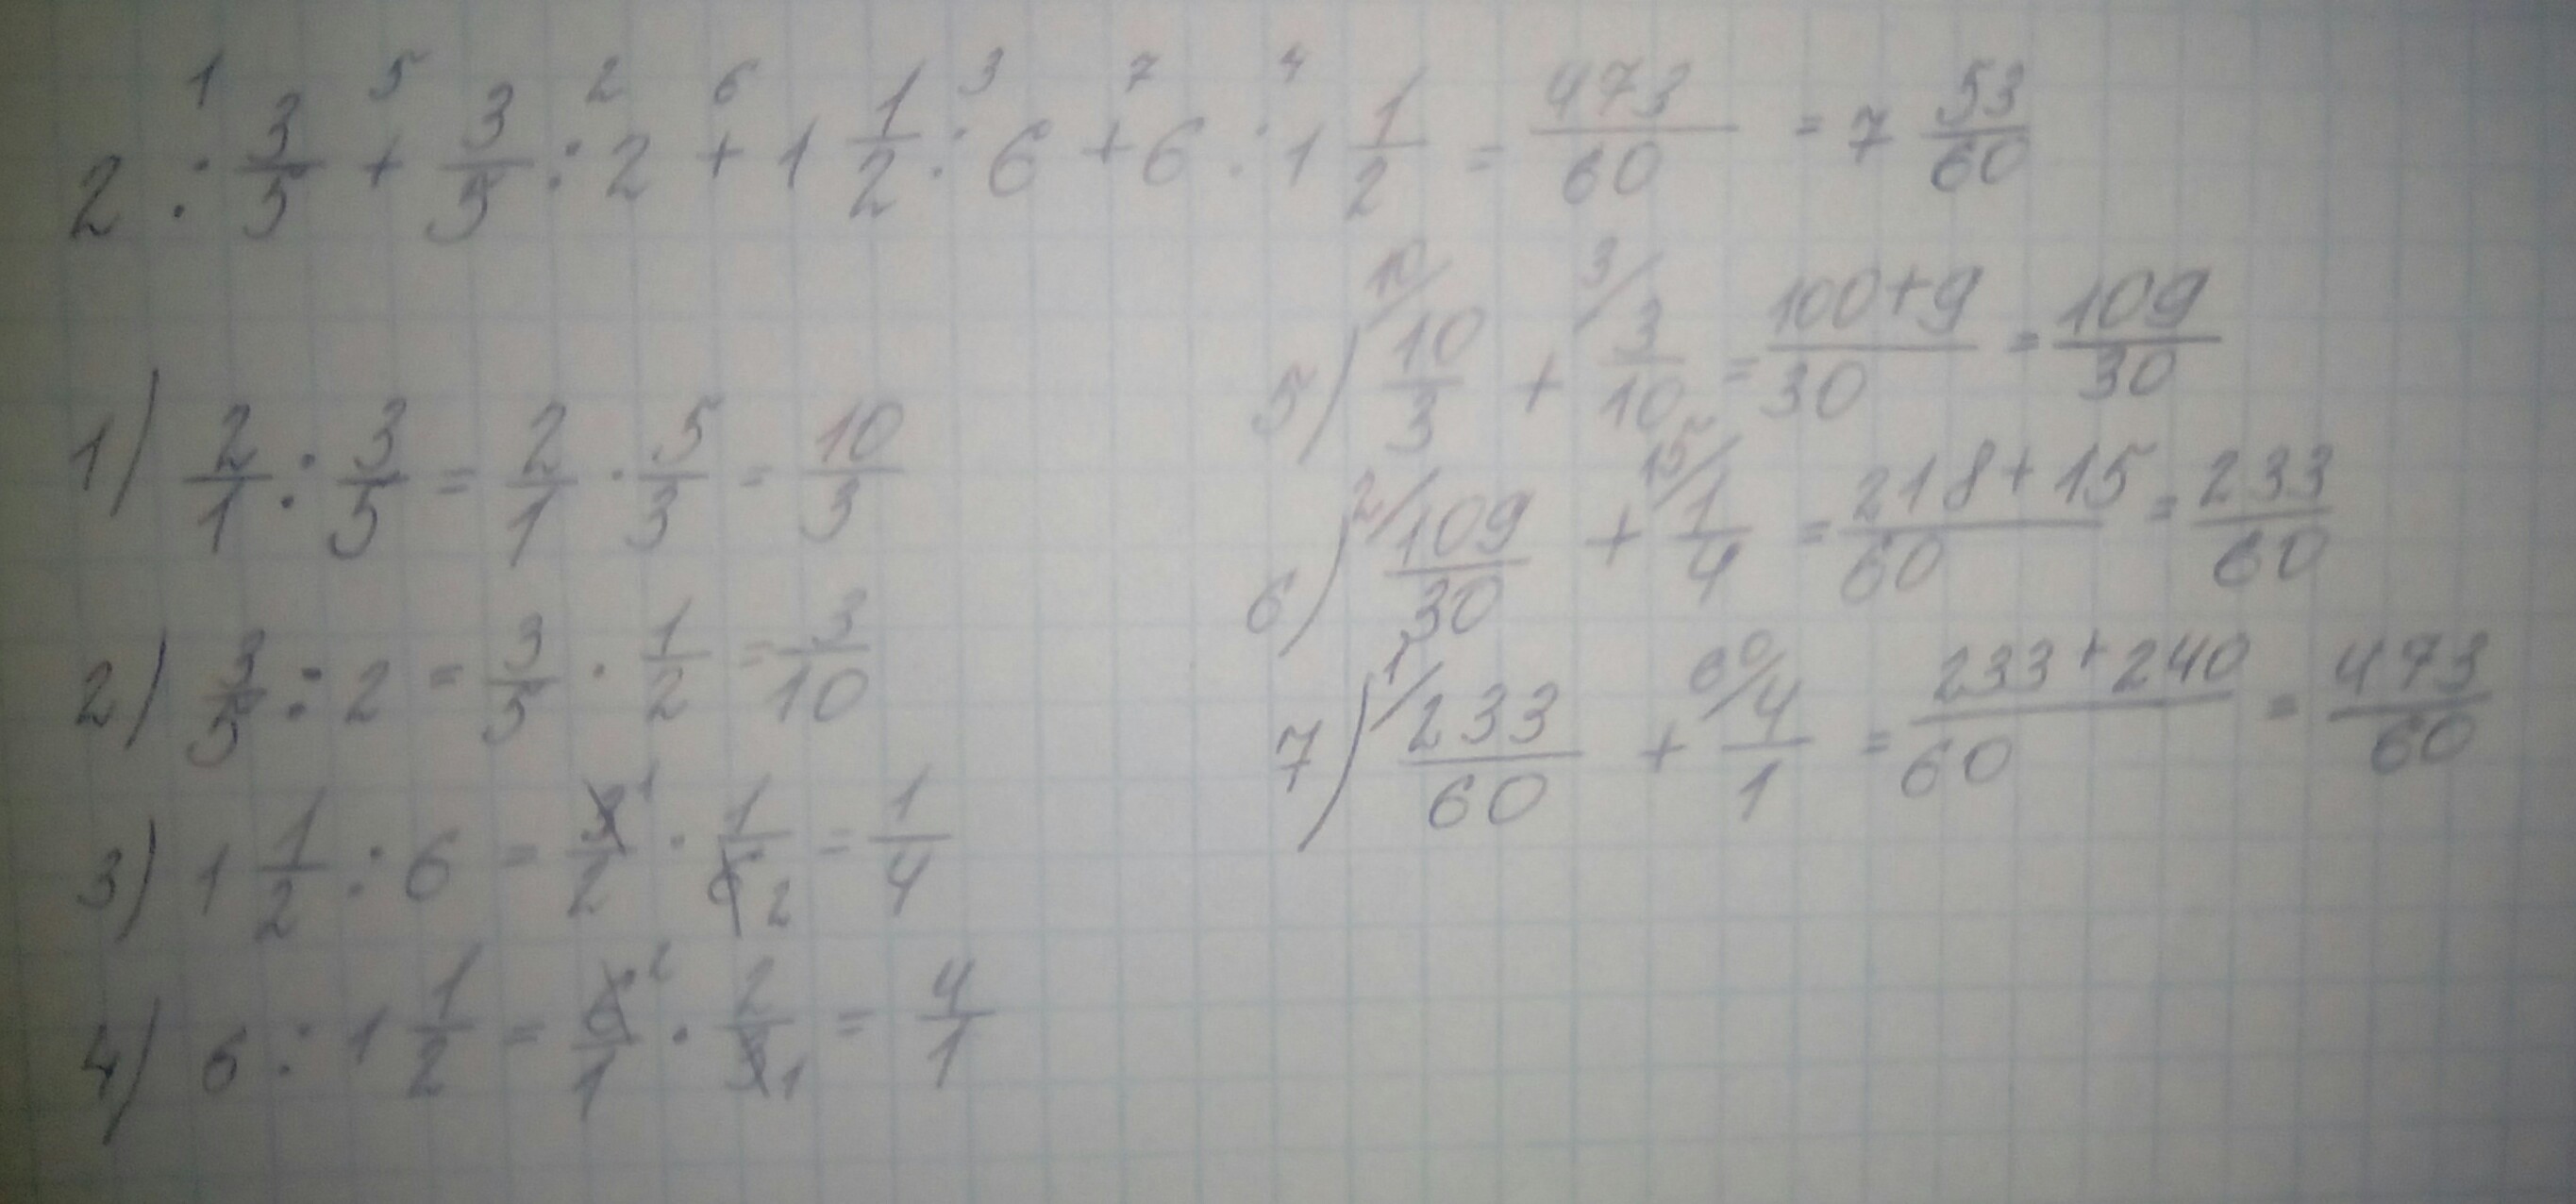 2 : 3/5 + 3/5 : 2 + 1 1/2 : 6 + 6 : 1 1/2 = 473/60 = 7 53/60
1) 2/1 : 3/5 = 2/1 · 5/3 = 10/3
2) 3/5 : 2 = 3/5 · 1/2 = 3/10
3) 1 1/2 : 6 = 3/2 · 1/6 = 1/4
4) 6 : 1 1/2 = 6/1 · 2/3 = 4/1
5) 10/3 + 3/10 = 100+9/30 = 109/30
6) 109/30 + 1/4 = 218+15/60 = 233/60
7) 233/60 + 4/1 = 233+240/60 = 473/60